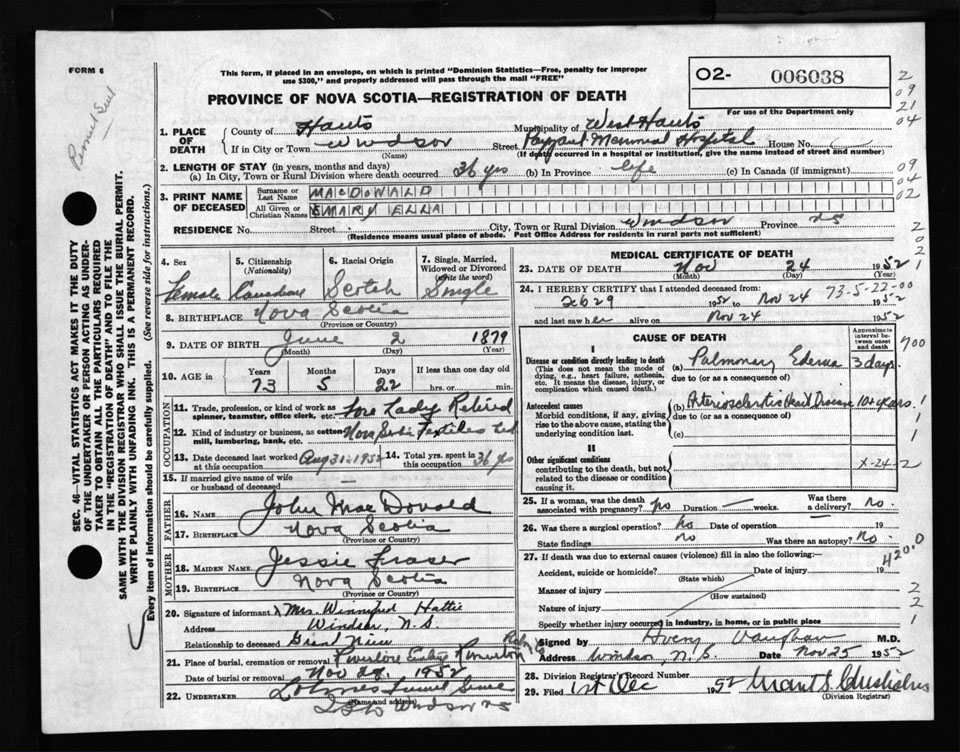 FORM 6
This form, if placed in an envelope, on which is printed "Dominion Statistics—Free, penalty for improper
use $300," and properly addressed will pass through the mail "FREE"
02- 006038
For use of the Department only
PROVINCE OF NOVA SCOTIA—REGISTRATION OF DEATH
1. PLACE OF DEATH
County of Hants Municipality of West Hants
If in City or Town Windsor Street Payzant Memorial Hospital House No.
(Name) (If death occurred in a hospital or institution, give the name instead of street and number)
2. LENGTH OF STAY (in years, months and days)
(a) In City, Town or Rural Division where death occurred 36 yrs (b) In Province life (c) In Canada (if immigrant)
3. PRINT NAME OF DECEASED
Surname or Last Name MACDONALD
All Given or Christian Names MARY ELLA
RESIDENCE No. Street City, Town or Rural Division Windsor Province NS
(Residence means usual place of abode. Post Office Address for residents in rural parts not sufficient)
4. Sex 5. Citizenship (Nationality) 6. Racial Origin 7. Single, Married, Widowed or Divorced (Write the word)
Female Canadian Scotch Single
8. BIRTHPLACE Nova Scotia
(Province or Country)
9. DATE OF BIRTH June 2 1879
(Month) (Day) (Year)
10. AGE in Years Months Days If less than one day old
73 5 22 hrs. or min.
OCCUPATION
11. Trade, profession, or kind of work as spinner, teamster, office clerk, etc. Fore Lady Retired
12. Kind of industry or business, as cotton mill, lumbering, bank, etc. Nova Scotia Textiles Ltd
13. Date deceased last worked at this occupation Aug 31-1952 14. Total yrs. spent in this occupation 36 yrs
15. If married give name of wife or husband of deceased —
FATHER
16. NAME John MacDonald
17. BIRTHPLACE Nova Scotia
(Province or Country)
MOTHER
18. MAIDEN NAME Jessie Fraser
19. BIRTHPLACE Nova Scotia
(Province or Country)
20. Signature of informant Mrs. Winnifred Hattie
Address Windsor, N.S.
Relationship to deceased Grand Niece
21. Place of burial, cremation or removal
Date of burial or removal Nov 1952
22. UNDERTAKER
(Name and address)
Windsor NS
MEDICAL CERTIFICATE OF DEATH
23. DATE OF DEATH Nov 24 1952
(Month) (Day) (Year)
24. I HEREBY CERTIFY that I attended deceased from:
Feb 29 1952 to Nov 24 1952
73-5-22-00
and last saw her alive on Nov 24 1952
CAUSE OF DEATH
Approximate interval between onset and death
I
Disease or condition directly leading to death
(This does not mean the mode of dying, e.g., heart failure, asthenia, etc. It means the disease, injury, or complication which caused death.)
(a) Pulmonary Edema 3 days
due to (or as a consequence of)
Antecedent causes
Morbid conditions, if any, giving rise to the above cause, stating the underlying condition last.
(b) Arteriosclerotic Heart Disease 10+ years.
due to (or as a consequence of)
(c)
II
Other significant conditions
contributing to the death, but not related to the disease or condition causing it.
X-24-2
25. If a woman, was the death associated with pregnancy? no Duration — weeks. Was there a delivery? no.
26. Was there a surgical operation? no Date of operation 19
State findings no Was there an autopsy? No.
27. If death was due to external causes (violence) fill in also the following:—
Accident, suicide or homicide? Date of injury 19
(State which)
Manner of injury
(How sustained)
Nature of injury
Specify whether injury occurred in industry, in home, or in public place
Signed by Avery Vaughan M.D.
Address Windsor, N.S. Date Nov 25 1952
28. Division Registrar's Record Number
29. Filed 1st Dec 1952
(Division Registrar)
2
09
21
04
09
04
02
2
0
2
1
700
1
1
1
420.0
2
2
1
SEC. 46—VITAL STATISTICS ACT MAKES IT THE DUTY
OF THE UNDERTAKER OR PERSON ACTING AS UNDERTAKER TO OBTAIN ALL THE PARTICULARS REQUIRED
IN THE "REGISTRATION OF DEATH" AND TO FILE THE
SAME WITH THE DIVISION REGISTRAR WHO SHALL ISSUE THE BURIAL PERMIT.
WRITE PLAINLY WITH UNFADING INK. THIS IS A PERMANENT RECORD.
Every item of information should be carefully supplied. (See reverse side for instructions.)